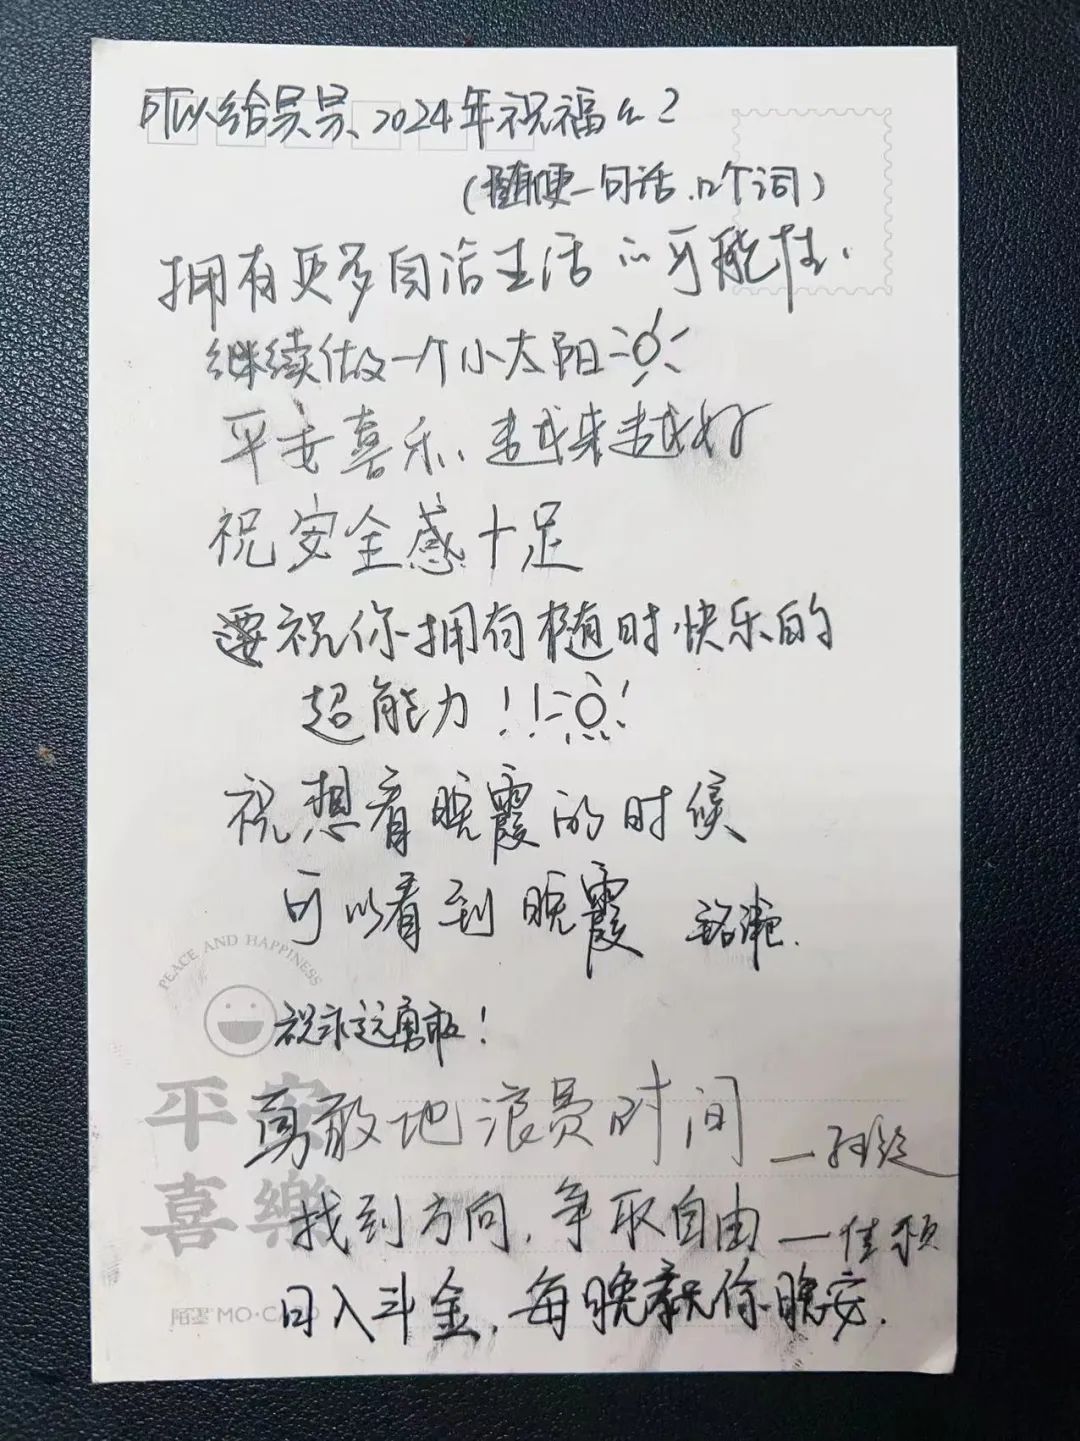 可以给昊昊、2024年祝福么？
（随便一句话、几个词）
拥有更多自洽生活的可能性.
继续做一个小太阳
平安喜乐、越来越好
祝安全感十足
要祝你拥有随时快乐的
超能力！！！
祝想看晚霞的时候
可以看到晚霞
PEACE AND HAPPINESS
祝永远勇敢！
勇敢地浪费时间
平安
喜樂
找到方向，争取自由
日入斗金，每晚都祝你晚安.
陌墨 MO·CARD